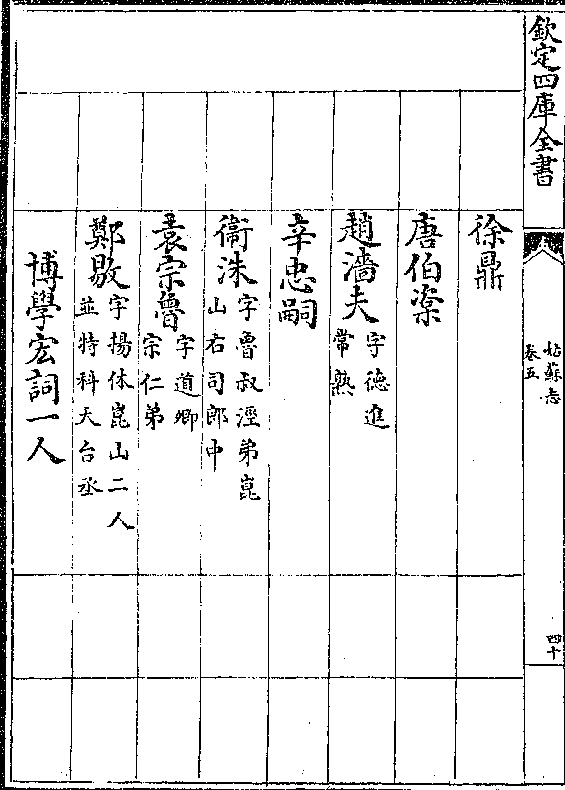 欽定四庫全書
姑蘇志
卷五
四十
徐鼎
唐伯濼
趙濇夫 字德進
常熟
辛忠嗣
衞洙 字魯叔涇弟崑
山右司郎中
袁宗魯 字道卿
宗仁弟
鄭敭 字揚休崑山二人
並特科天台丞
博學宏詞一人